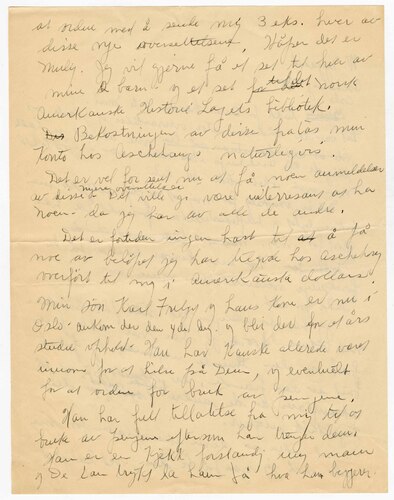 at orden med å sende mig 3 eks. hver av
disse nye oversettelsene. Håper det er
mulig. Jeg vil gjerne få et set til hver av
mine 2 barn - og et set til det norsk
Amerikanske Historie Lagets bibliotek.
Bekostningen av disse fratas min
konto hos Aschehougs naturligvis.
Det er vel for sent nu at få noen anmeldelser
av disse nyere oversettelser. Det ville jo være interresant at ha
noen - da jeg har av alle de andre.
Det er fortiden ingen hast til å få
noe av beløpet jeg har tilgode hos Aschehoug
overført til mig i Amerikanske dollars.
Min søn Karl og hans kone er nu i
Oslo - ankom der den og blir der for et års
studie ophold. Han har kanske allerede været
innom for at hilse på Dem, og eventuelt
for at orden for bruk av pengene.
Han har full tillatelse fra mig til at
bruke av pengene eftersom han trenger dem.
Han er en kjekk forstandig ung mann
og De kan trygt la ham få hva han begjærer.